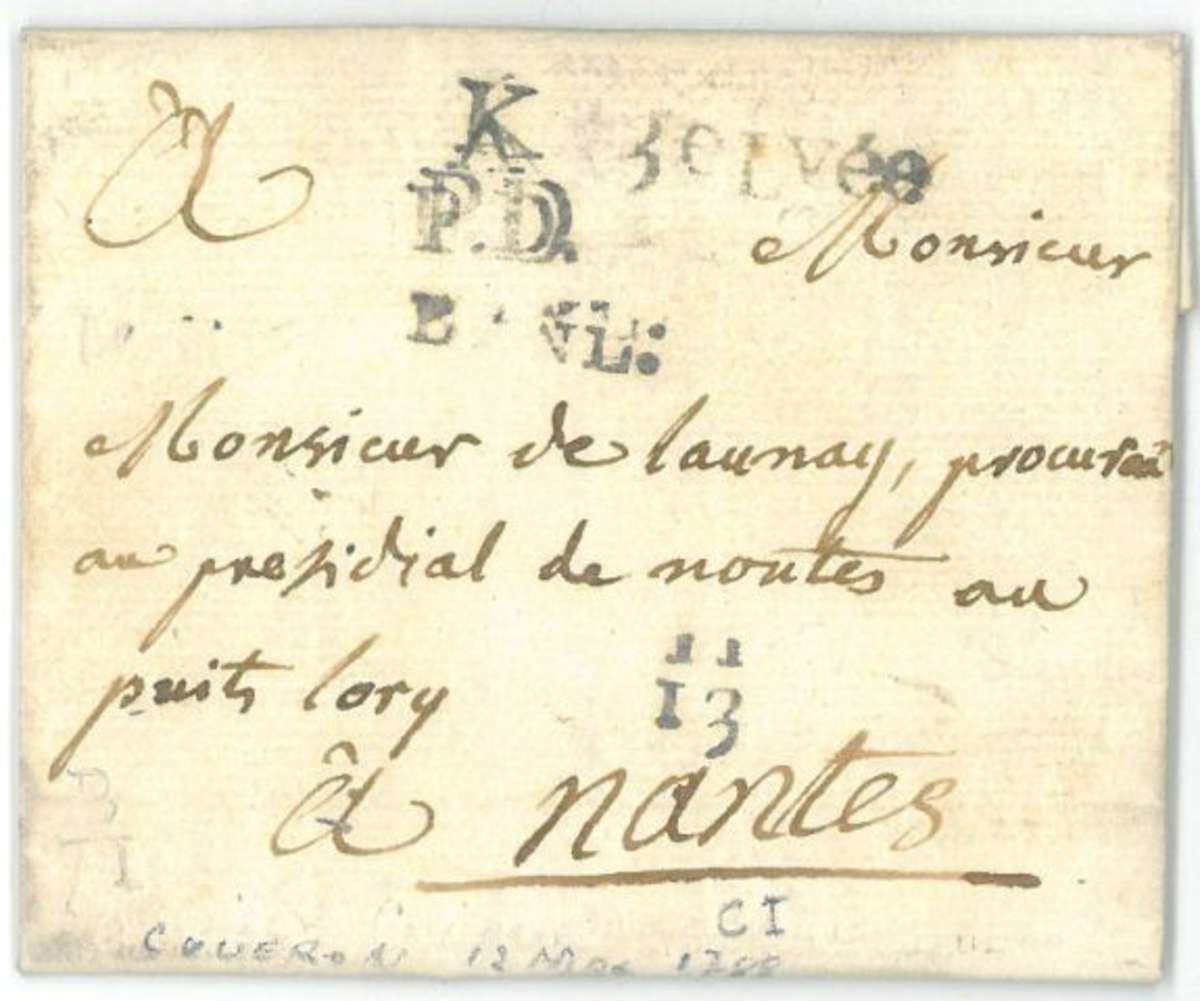 A
K
P.D.
Monsieur
Monsieur de launay, procureur
au presidial de nantes au
puits lory
11
13
â nantes
CI
COUERON 12